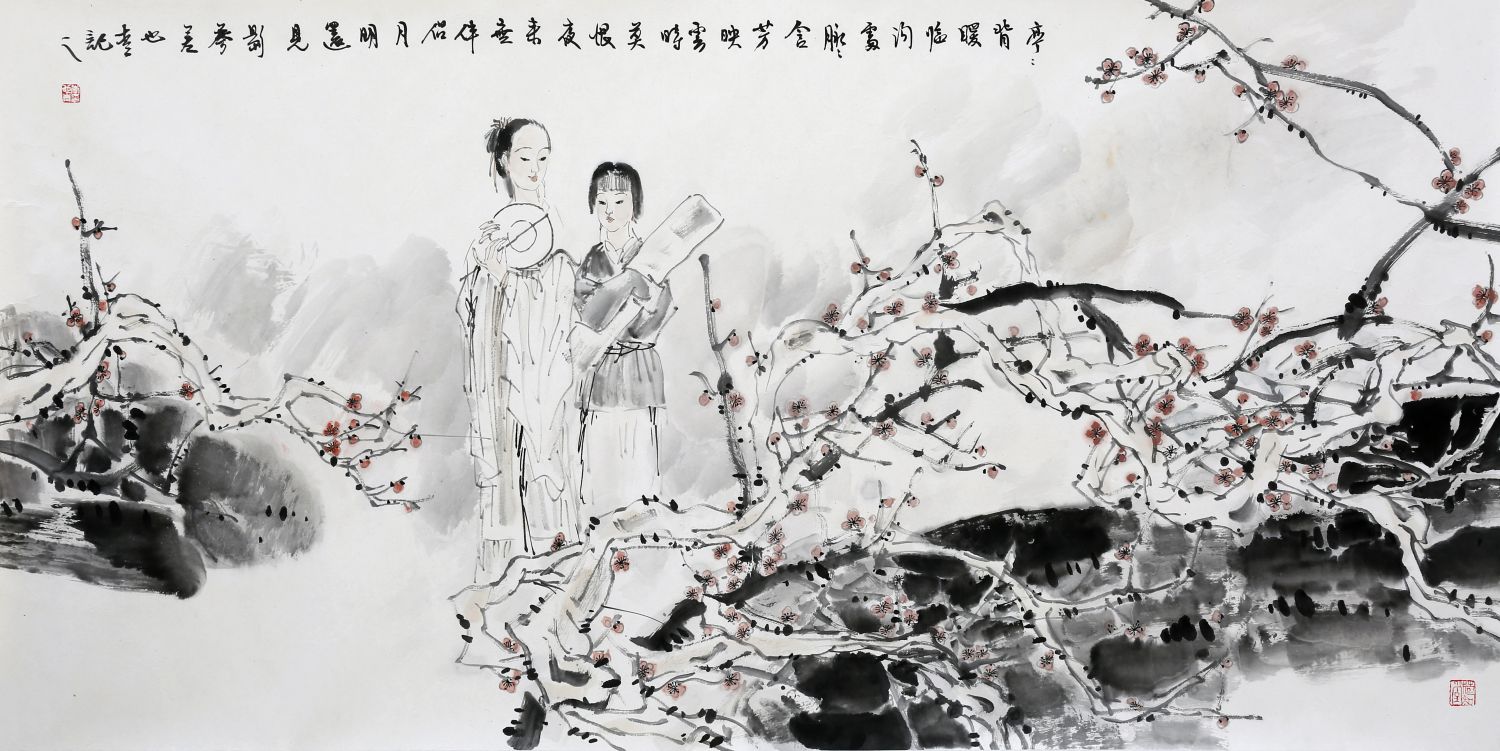 亭亭背暖临沟處脉脉含芳映雪時莫恨夜来無伴侣月明還見影參差也記之